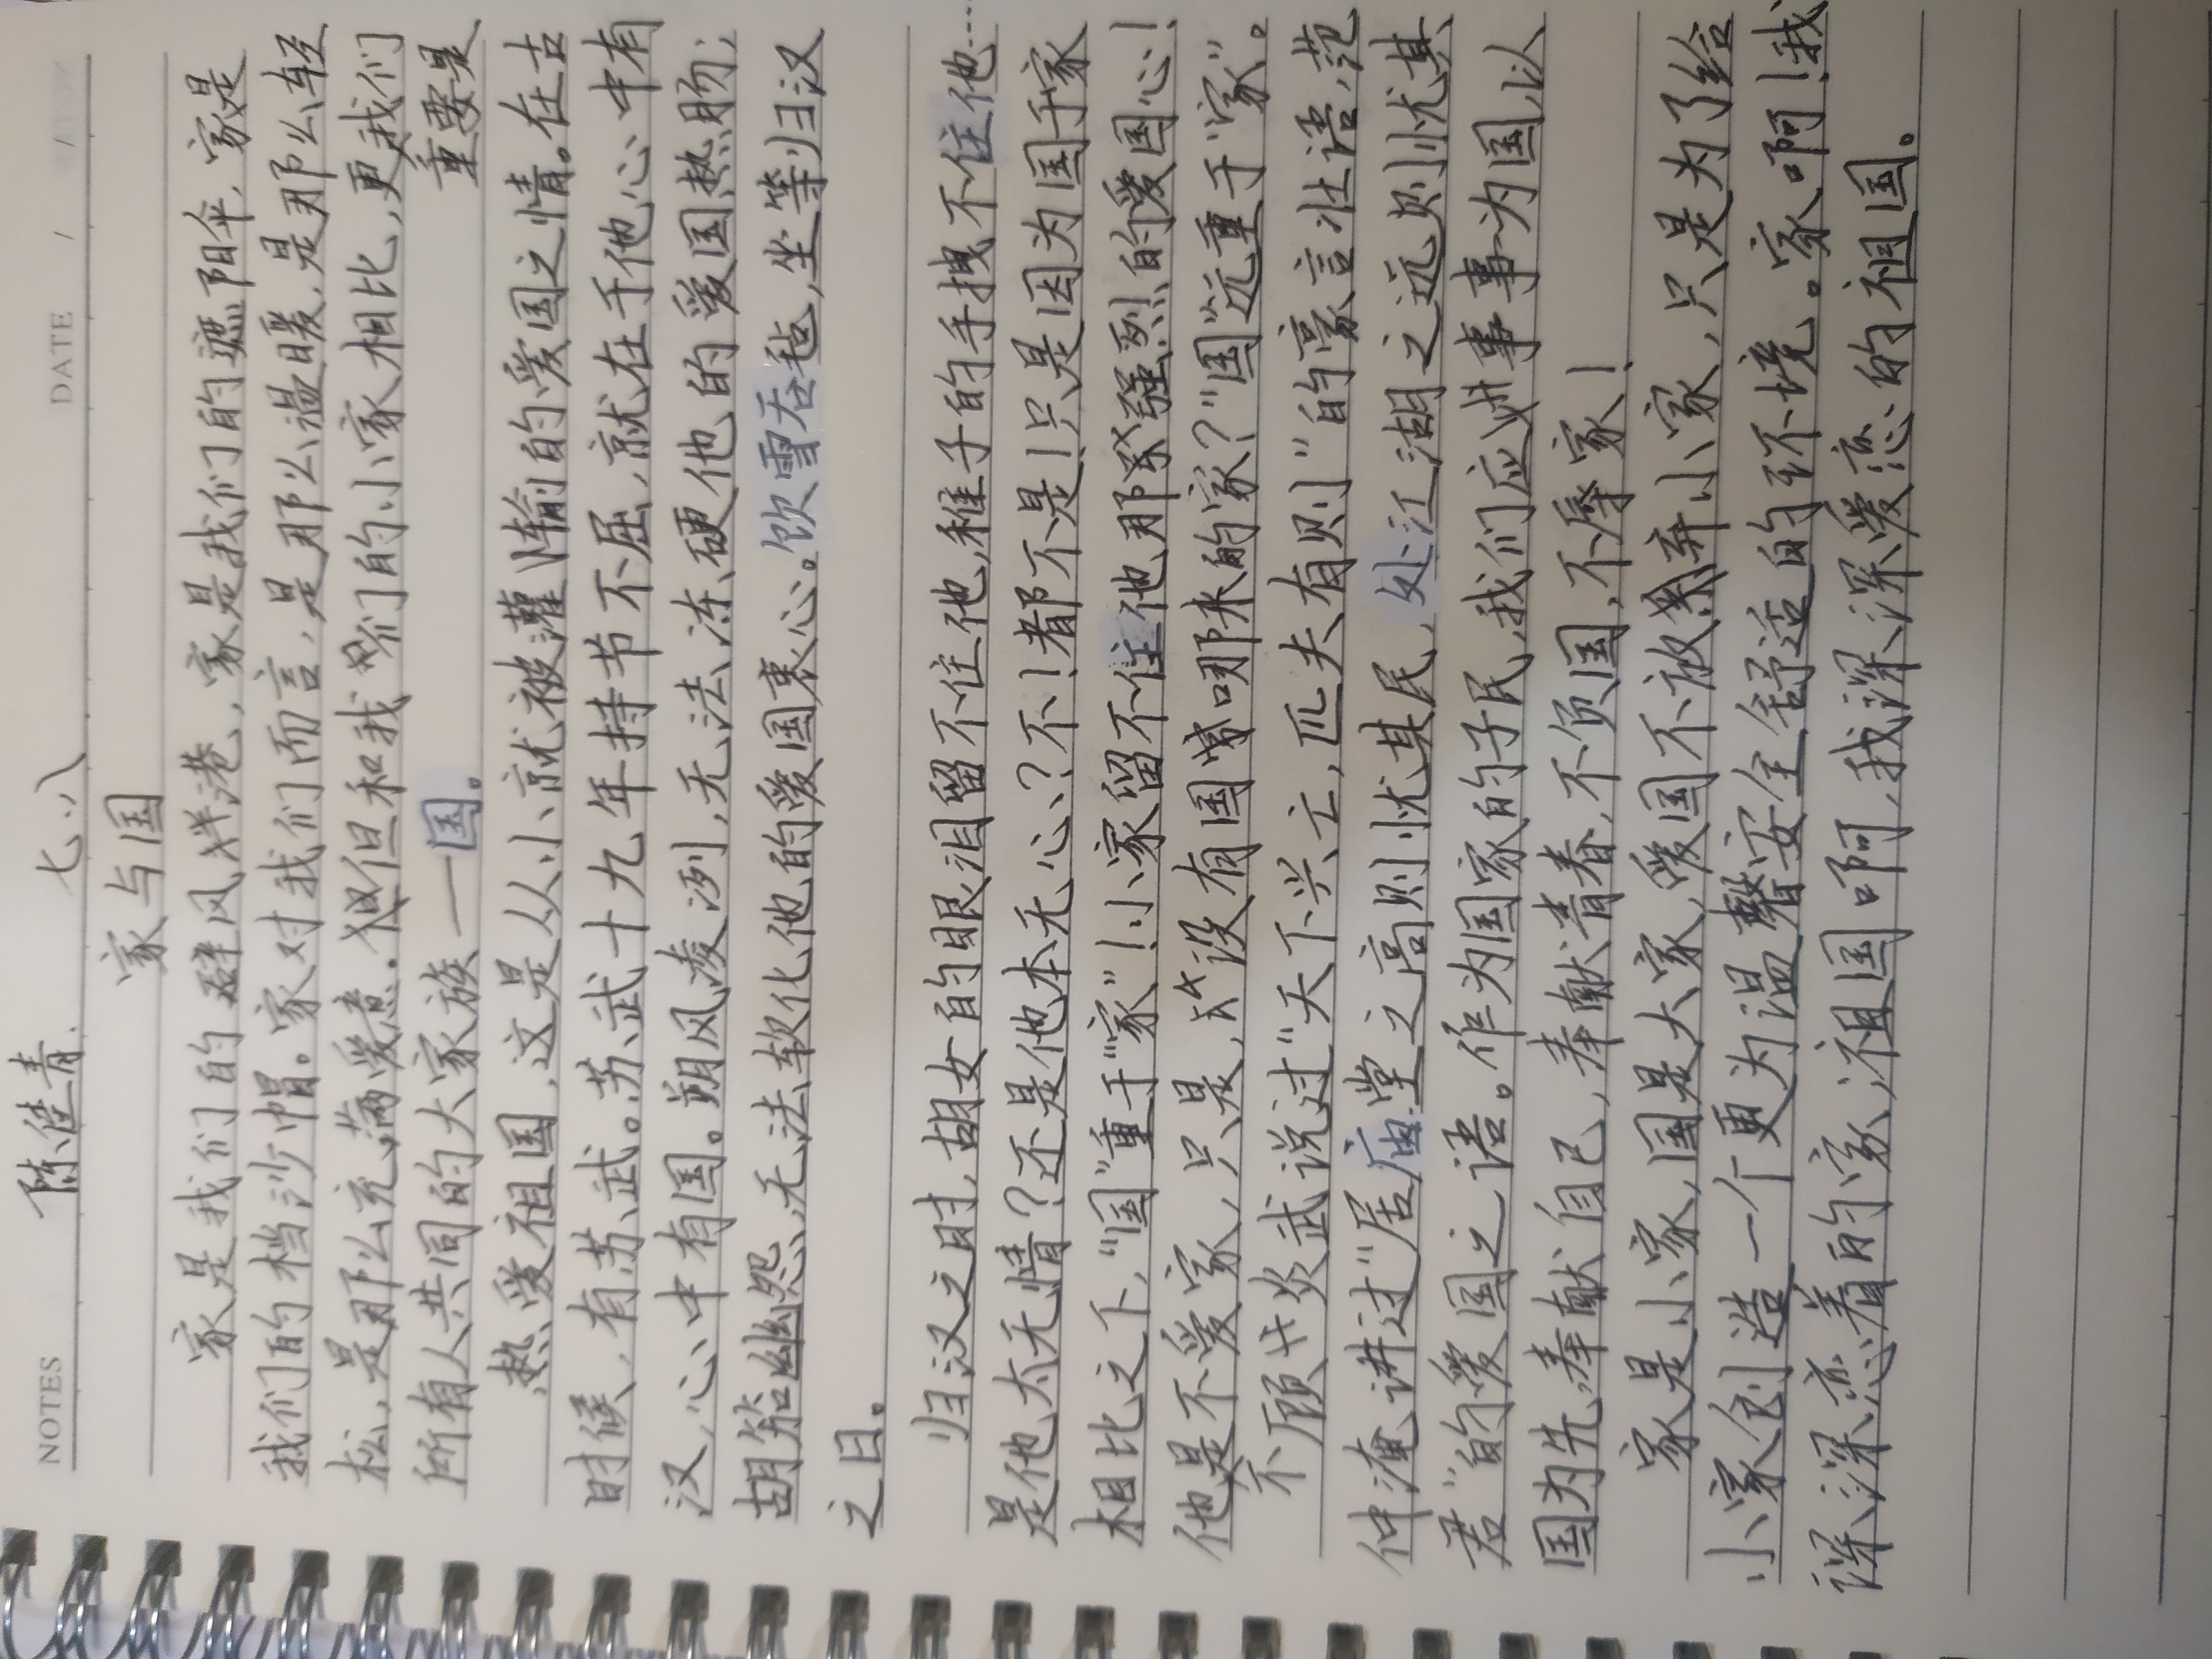 NOTES
DATE / /
陈佳青 七、八
家与国
家是我们的避风港,家是我们的遮阳伞,家是
我们的档沙帽。家对我们而言,是那么温暖,是那么轻
松,是那么充满爱意。但和我们的小家相比,更我们
重要是
所有人共同的大家族——国。
热爱祖国,这是从小就被灌输的爱国之情。在古
时候,有苏武。苏武十九年持节不屈,就在于他心中有
汉,心中有国。朔风凌冽,无法冻硬他的爱国热肠;
胡笳幽怨,无法软化他的爱国衷心。饮雪吞毡,坐等归汉
之日。
归汉之时,胡女的眼泪留不住他,稚子的手拽不住他…
是他太无情?还是他本无心?不!都不是!只是因为国于家
相比之下,“国”重于“家”!小家留不住他那强烈的爱国心!
他是不爱家,只是,没有国哪来的家?“国”远重于“家”。
顾炎武说过“天下兴亡,匹夫有则”的豪言壮语,范
仲淹讲过“居庙堂之高则忧其民,处江湖之远则忧其
君”的爱国之语。作为国家的子民,我们应事事为国,以
国为先,奉献自己,奉献青春,不负国,不辱家!
家是小家,国是大家,爱国不放弃小家,只是为了给
小家创造一个更为温馨安全舒适的环境。家啊!我
深深恋着的家;祖国啊,我深深爱恋的祖国。